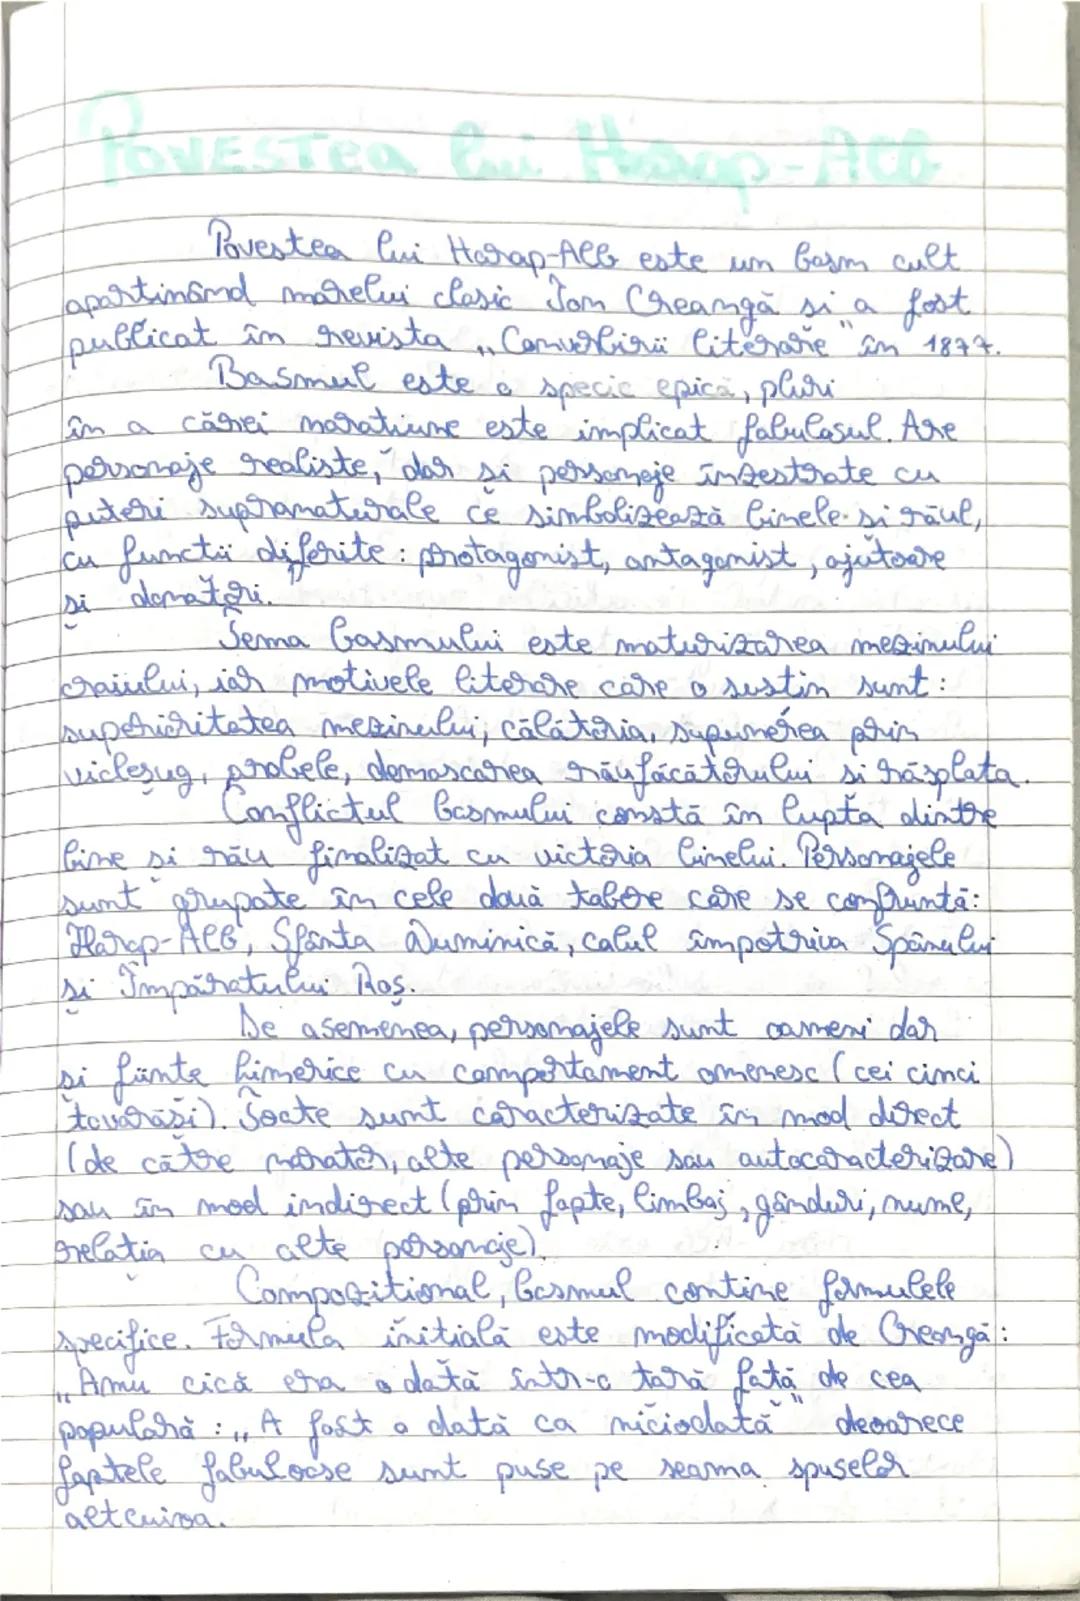 Povestea lui Harap-Alb
Povestea lui Harap-Alb este un basm cult
aparținând marelui clasic Ion Creangă și a fost
publicat în revista „Convorbirii literare" în 1877.
Basmul este o specie epică, pluri
în a cărei narațiune este implicat fabulosul. Are
personaje realiste, dar și personaje înzestrate cu
puteri supranaturale ce simbolizează binele și răul,
cu funcții diferite: protagonist, antagonist, ajutoare
și donatori.
Tema basmului este maturizarea mezinului
craiului, iar motivele literare care o susțin sunt:
superioritatea mezinului, călătoria, supunerea prin
vicleșug, probele, demascarea răufăcătorului și răsplata.
Conflictul basmului constă în lupta dintre
bine și rău finalizat cu victoria binelui. Personajele
sunt grupate în cele două tabere care se confruntă:
Harap-Alb, Sfânta Duminică, calul împotriva Spânului
și Împăratului Roș.
De asemenea, personajele sunt oameni dar
și ființe himerice cu comportament omenesc (cei cinci
tovarăși). Toate sunt caracterizate în mod direct
(de către narator, alte personaje sau autocaracterizare)
sau în mod indirect (prin fapte, limbaj, gânduri, nume,
relația cu alte personaje).
Compozițional, basmul conține formulele
specifice. Formula inițială este modificată de Creangă:
„Amu cică era o dată într-o țară față de cea
populară: „A fost o dată ca niciodată" deoarece
faptele fabuloase sunt puse pe seama spuselor
altcuiva.